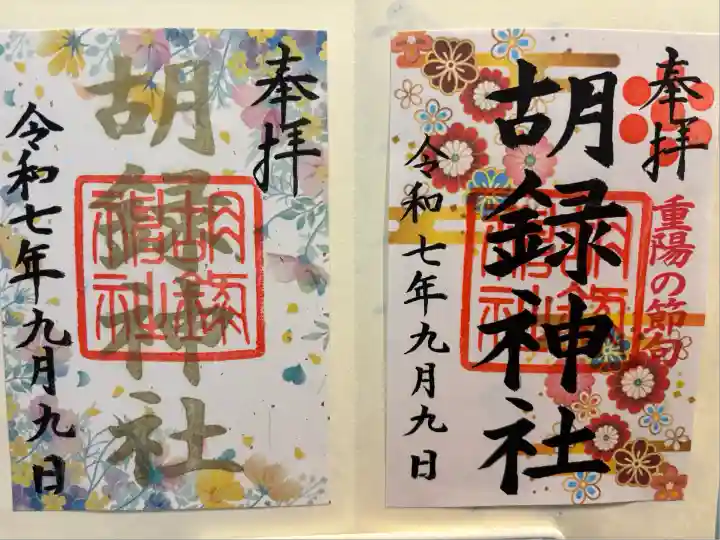 奉拝
重陽の節句
胡録神社
令和七年九月九日
奉拝
胡録神社
令和七年九月九日